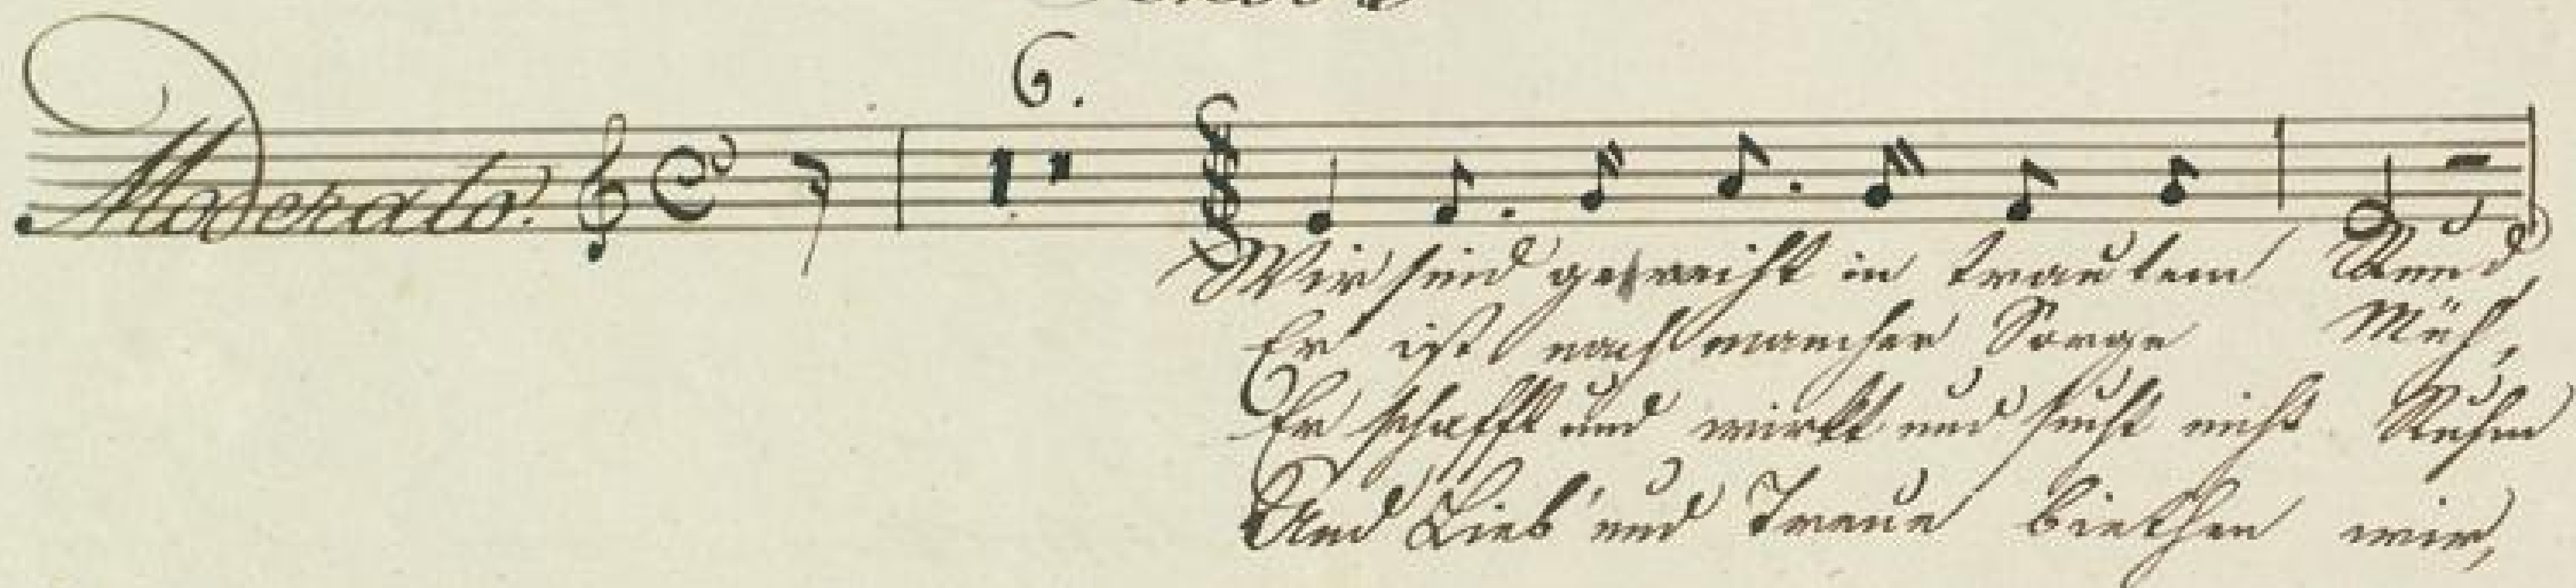 6.
Moderato.
Wir sind gereiht in trautem Bund,
Er ist nach mancher Sorge Müh,
Er schafft und wirkt und sucht nicht Ruhm
Und Lieb' und Treue biethen wir,